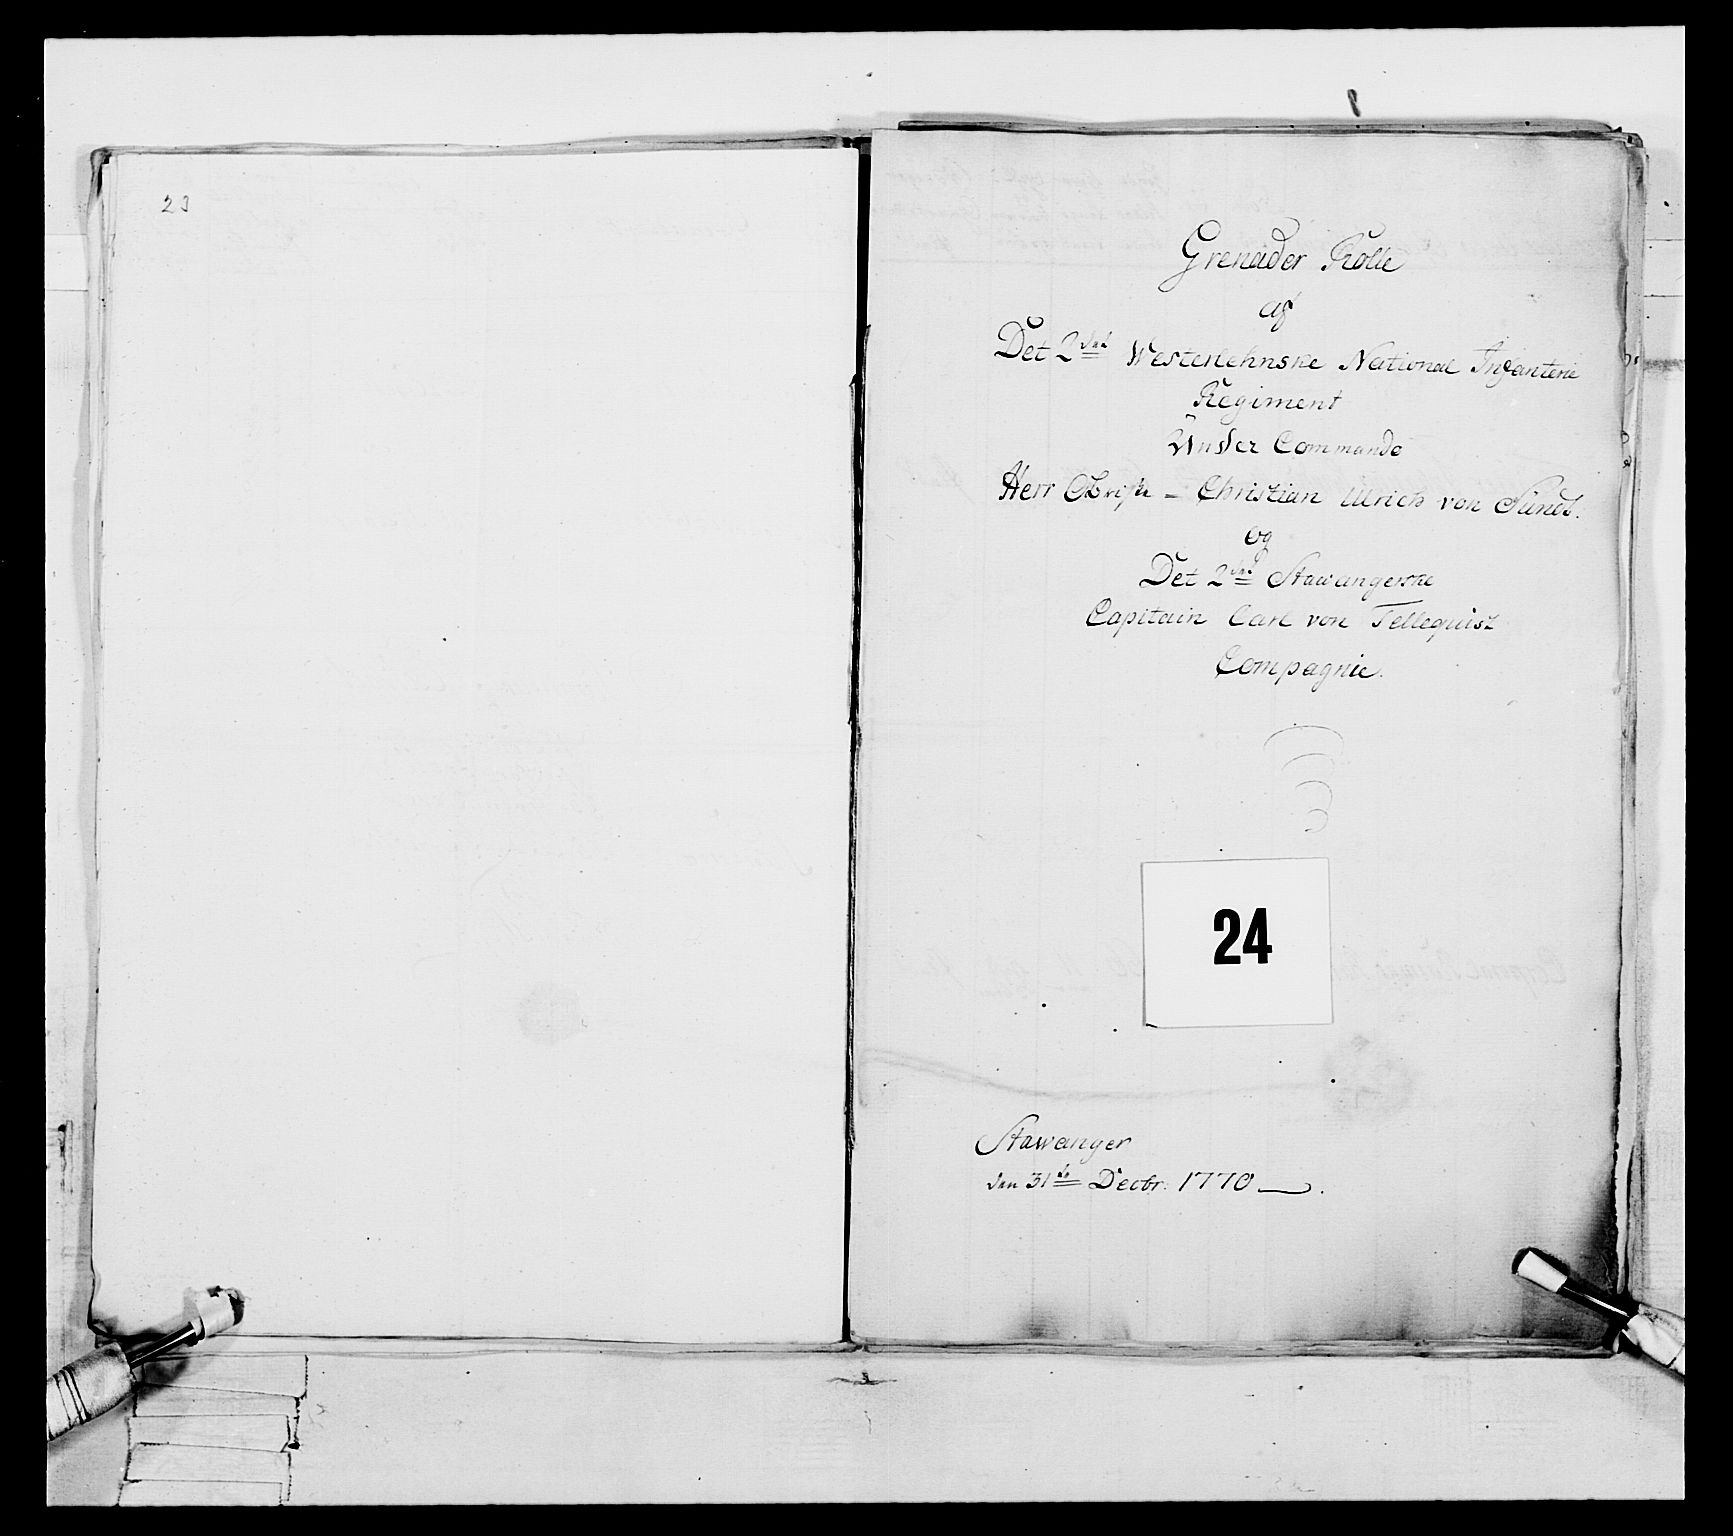 23
Grenader Rolle
af
Det 2det Westerlehnske National Infanterie
Regiment
Under Commando
Herr Obrist – Christian Ulrich von Sundt:
og
Det 2det Stawangerske
Capitain Carl von Tellequist
Compagnie.
24
Stawanger
den 31te Decbr. 1770.